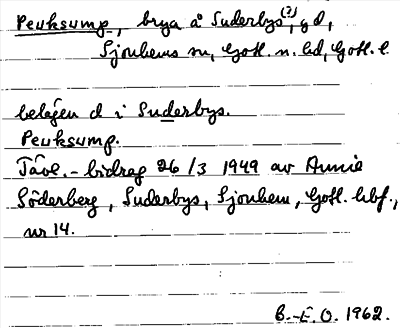 Peuksump, brya å Suderbys(?), gd,
Sjonhems sn, Gotl. n. hd, Gotl. l.
belägen d i Suderbys.
Peuksump.
Tävl.-bidrag 26/3 1949 av Annie
Söderberg, Suderbys, Sjonhem, Gotl. hbf.,
nr 14.
B.-E.O. 1962.